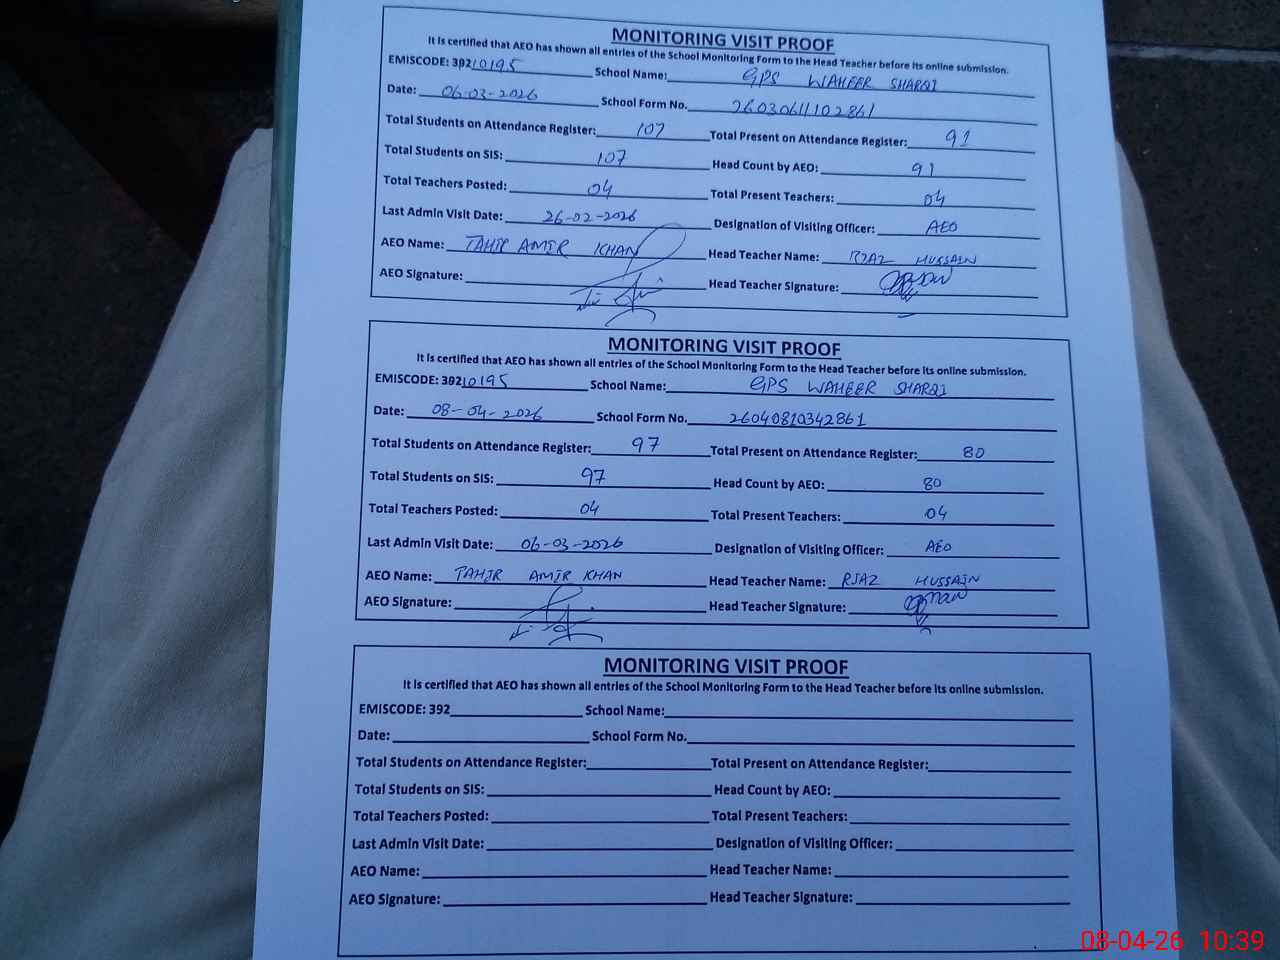 MONITORING VISIT PROOF
It is certified that AEO has shown all entries of the School Monitoring Form to the Head Teacher before its online submission.
EMISCODE: 39210195 School Name: GPS WAHEER SHARQI
Date: 06-03-2026 School Form No. 26030611102861
Total Students on Attendance Register: 107 Total Present on Attendance Register: 91
Total Students on SIS: 107 Head Count by AEO: 91
Total Teachers Posted: 04 Total Present Teachers: 04
Last Admin Visit Date: 26-02-2026 Designation of Visiting Officer: AEO
AEO Name: TAHIR AMIR KHAN Head Teacher Name: RIAZ HUSSAIN
AEO Signature: Head Teacher Signature:
MONITORING VISIT PROOF
It is certified that AEO has shown all entries of the School Monitoring Form to the Head Teacher before its online submission.
EMISCODE: 39210195 School Name: GPS WAHEER SHARQI
Date: 08-04-2026 School Form No. 26040810342861
Total Students on Attendance Register: 97 Total Present on Attendance Register: 80
Total Students on SIS: 97 Head Count by AEO: 80
Total Teachers Posted: 04 Total Present Teachers: 04
Last Admin Visit Date: 06-03-2026 Designation of Visiting Officer: AEO
AEO Name: TAHIR AMIR KHAN Head Teacher Name: RIAZ HUSSAIN
AEO Signature: Head Teacher Signature:
MONITORING VISIT PROOF
It is certified that AEO has shown all entries of the School Monitoring Form to the Head Teacher before its online submission.
EMISCODE: 392 School Name:
Date: School Form No.
Total Students on Attendance Register: Total Present on Attendance Register:
Total Students on SIS: Head Count by AEO:
Total Teachers Posted: Total Present Teachers:
Last Admin Visit Date: Designation of Visiting Officer:
AEO Name: Head Teacher Name:
AEO Signature: Head Teacher Signature:
08-04-26 10:39